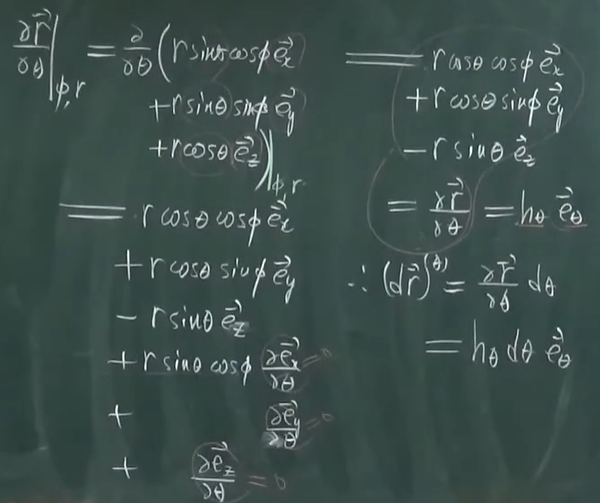 ∂r⃗/∂θ|ϕ,r = ∂/∂θ (r sinθ cosϕ e⃗x
+ r sinθ sinϕ e⃗y
+ r cosθ e⃗z)|ϕ,r
= r cosθ cosϕ e⃗x
+ r cosθ sinϕ e⃗y
− r sinθ e⃗z
+ r sinθ cosϕ ∂e⃗x/∂θ = 0
+ ∂e⃗y/∂θ = 0
+ ∂e⃗z/∂θ = 0
= r cosθ cosϕ e⃗x
+ r cosθ sinϕ e⃗y
− r sinθ e⃗z
= ∂r⃗/∂θ = hθ e⃗θ
∴ (dr⃗)^(θ) = ∂r⃗/∂θ dθ
= hθ dθ e⃗θ